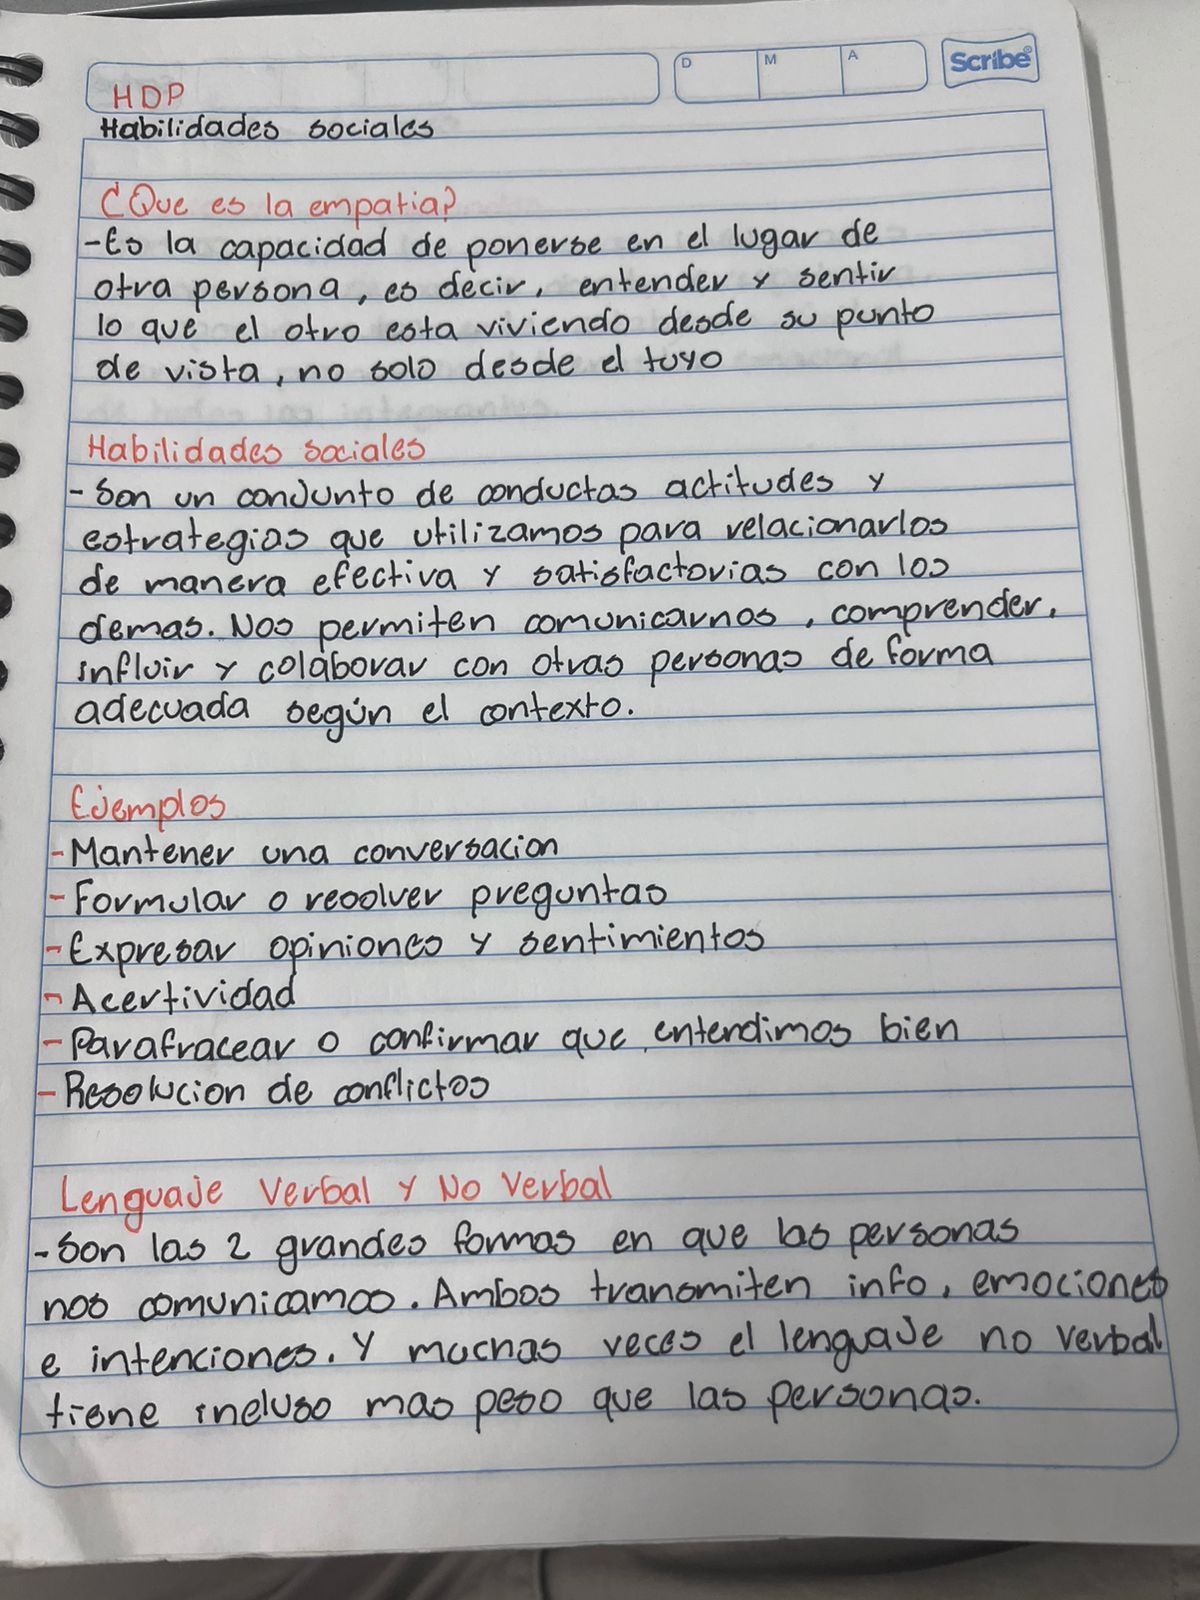 D M A Scribe
HDP
Habilidades sociales
¿Que es la empatia?
-Es la capacidad de ponerse en el lugar de
otra persona, es decir, entender y sentir
lo que el otro esta viviendo desde su punto
de vista, no solo desde el tuyo
Habilidades sociales
- Son un conjunto de conductas actitudes y
estrategias que utilizamos para relacionarlos
de manera efectiva y satisfactorias con los
demas. Nos permiten comunicarnos, comprender,
influir y colaborar con otras personas de forma
adecuada según el contexto.
Ejemplos
- Mantener una conversacion
- Formular o resolver preguntas
- Expresar opiniones y sentimientos
- Acertividad
- Parafracear o confirmar que entendimos bien
- Resolucion de conflictos
Lenguaje Verbal y No Verbal
- Son las 2 grandes formas en que las personas
nos comunicamos. Ambos transmiten info, emociones
e intenciones. Y muchas veces el lenguaje no verbal
tiene incluso mas peso que las personas.